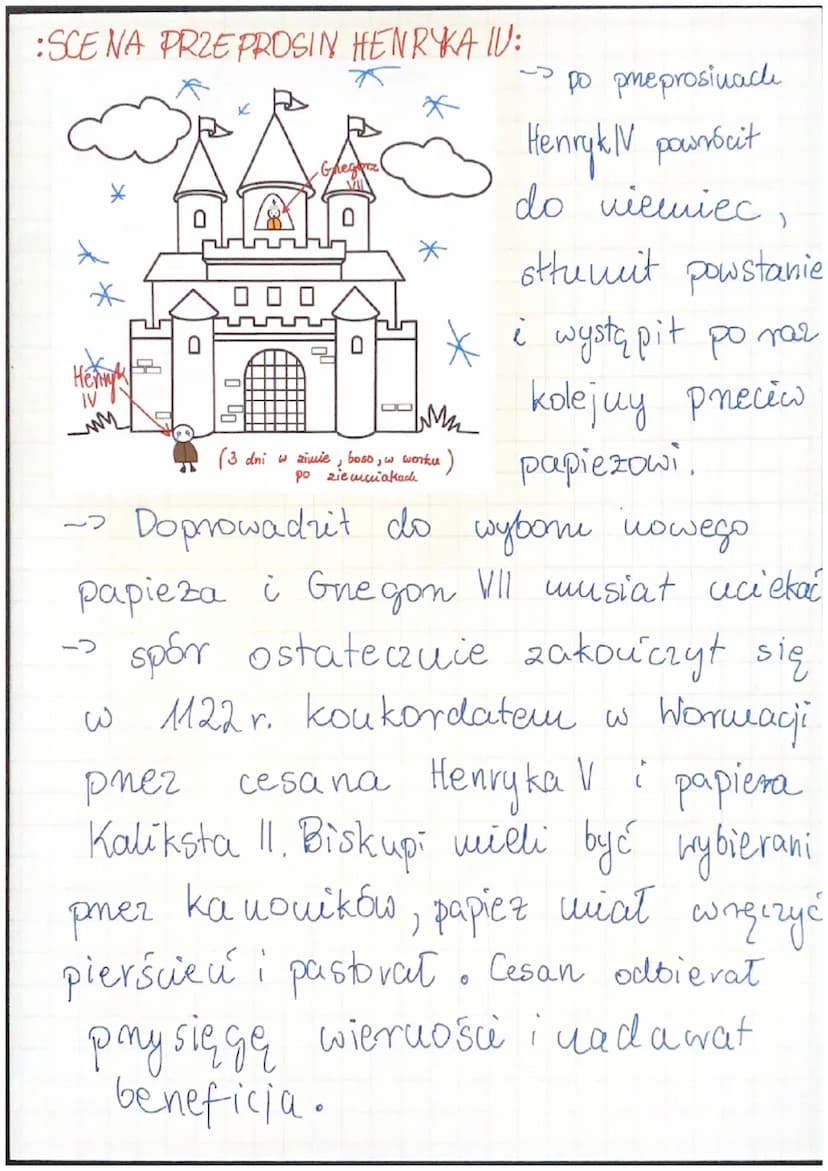 :SCENA PRZEPROSIN HENRYKA IV:
Grzegorz
VII
Henryk
IV
(3 dni w zimie, boso, w worku)
po ziemniakach
-> po przeprosinach
Henryk IV powrócił
do niemiec,
stłumił powstanie
i wystąpił po raz
kolejny przeciw
papieżowi.
-> Doprowadził do wyboru nowego
papieża i Grzegorz VII musiał uciekać
-> spór ostatecznie zakończył się
w 1122 r. konkordatem w Wormacji
przez cesarza Henryka V i papieża
Kaliksta II. Biskupi mieli być wybierani
przez kanoników, papież miał wręczyć
pierścień i pastorał. Cesarz odbierał
przysięgę wierności i nadawał
beneficja.